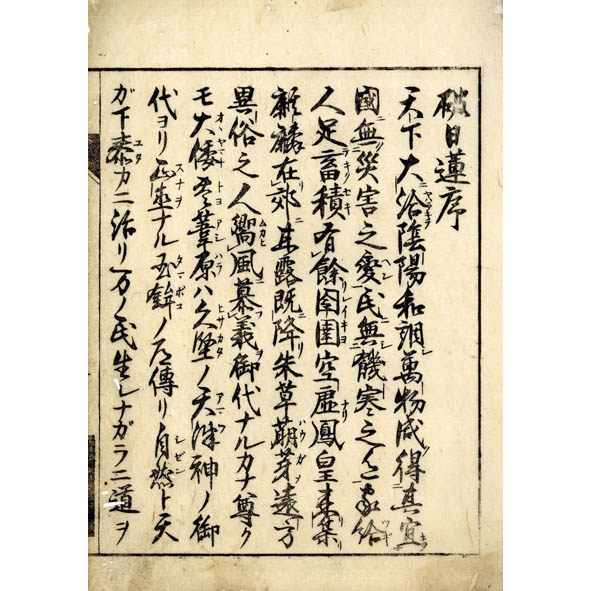 破日蓮序
天下大洽陰陽和調萬物咸得其宜
國無災害之變民無饑寒之色家給
人足畜積有餘囹圄空虛鳳皇来集
麒麟在郊甘露既降朱草萌芽遠方
異俗之人嚮風慕義御代ナルカナ尊ク
モ大倭豊葦原ハ久堅ノ天津神ノ御
代ヨリ正直ナル玉鉾ノ道傳リ自然ト天
ガ下泰カニ治リ万ノ民生レナガラニ道ヲ